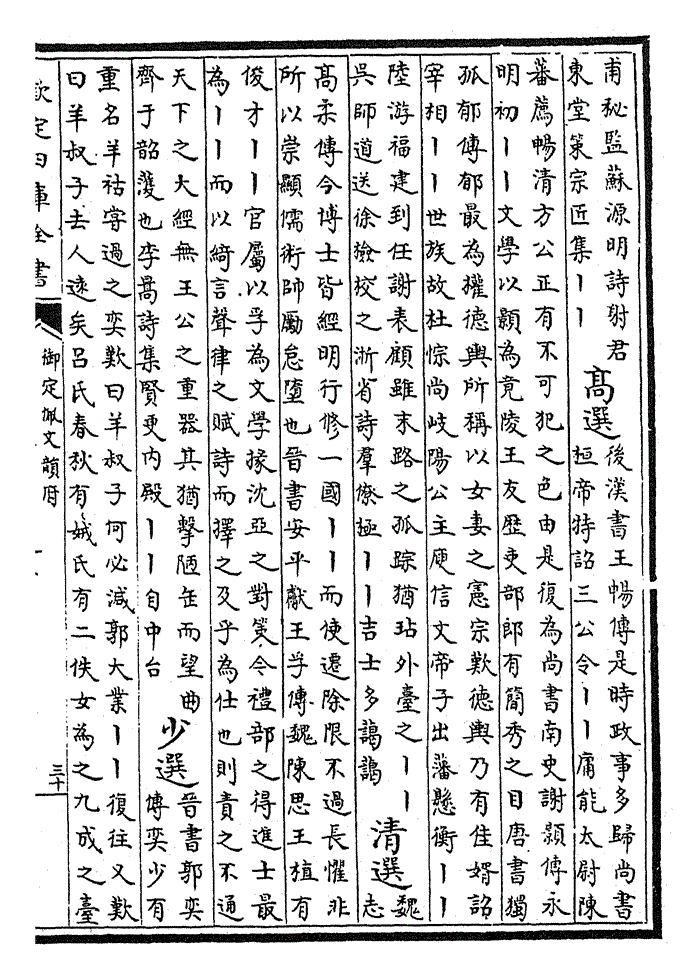 甫秘監蘇源明詩射君
東堂策宗匠集丨丨
高選
後漢書王暢傳是時政事多歸尚書
桓帝特詔三公令丨丨庸能太尉陳
蕃薦暢清方公正有不可犯之色由是復為尚書南史謝顥傳永
明初丨丨文學以顥為竟陵王友歴吏部郎有簡秀之目唐書獨
孤郁傳郁最為權德輿所稱以女妻之憲宗歎德輿乃有佳婿詔
宰相丨丨世族故杜悰尚岐陽公主庾信文帝子出藩懸衡丨丨
陸游福建到任謝表顧雖末路之孤踪猶玷外臺之丨丨
吳師道送徐撿校之浙省詩羣僚極丨丨吉士多藹藹
清選
魏
志
高柔傳今博士皆經明行修一國丨丨而使遷除限不過長懼非
所以崇顯儒術師勵怠墮也晉書安平獻王孚傳魏陳思王植有
俊才丨丨官屬以孚為文學掾沈亞之對策今禮部之得進士最
為丨丨而以綺言聲律之賦詩而擇之及乎為仕也則責之不通
天下之大經無王公之重器其猶擊陋缶而望曲
齊于韶濩也李暠詩集賢更内殿丨丨自中台
少選
晉書郭奕
傳奕少有
重名羊祜嘗過之奕歎曰羊叔子何必減郭大業丨丨復往又歎
曰羊叔子去人遠矣吕氏春秋有娀氏有二佚女為之九成之臺
欽定四庫全書
御定佩文韻府
三十